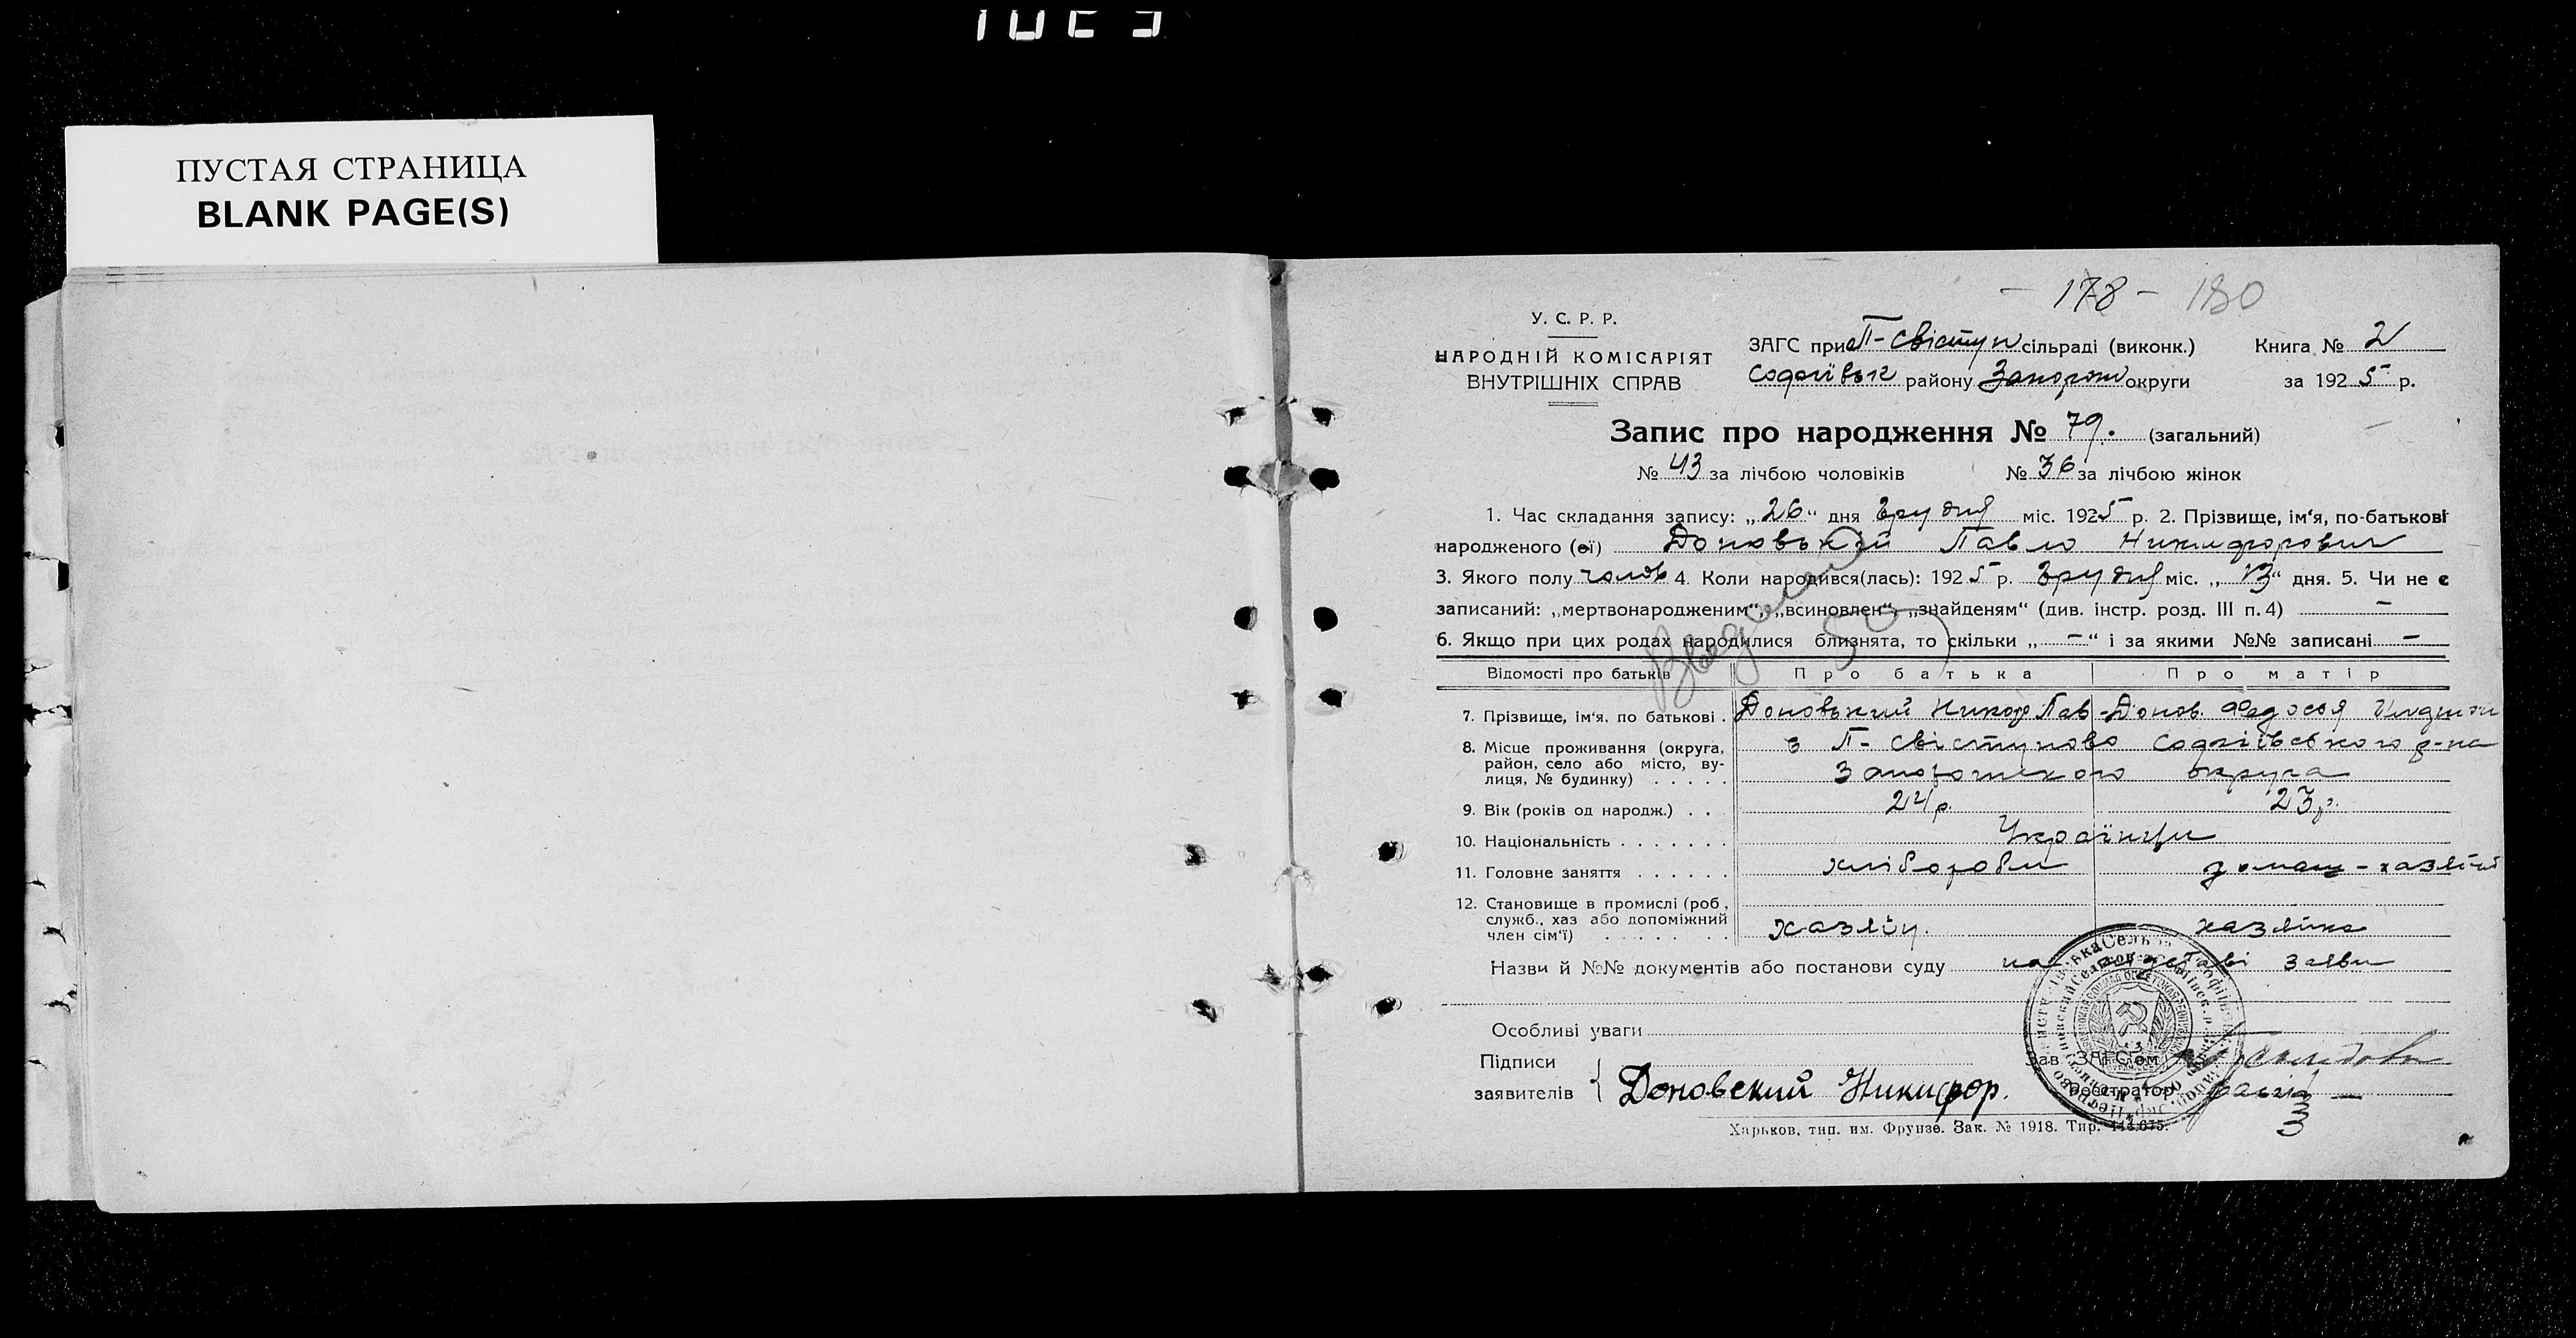 ПУСТАЯ СТРАНИЦА
BLANK PAGE(S)
178 - 180
У. С. Р. Р.
НАРОДНІЙ КОМІСАРІЯТ
ВНУТРІШНІХ СПРАВ
ЗАГС при П-Свістун сільраді (виконк.) Книга № 2
Софіївськ району Запорож округи за 1925 р.
Запис про народження № 79. (загальний)
№ 43 за лічбою чоловіків № 36 за лічбою жінок
1. Час складання запису: „26“ дня Грудня міс. 1925 р. 2. Прізвище, ім‘я, по-батькові
народженого (ої) Доновький Павло Никифорович
3. Якого полу чолов 4. Коли народився(лась): 1925 р. Грудня міс. „13“ дня. 5. Чи не є
записаний: „мертвонародженим“, „всиновлен“, „знайденям“ (див. інстр. розд. III п. 4) —
6. Якщо при цих родах народилися близнята, то скільки „—“ і за якими №№ записані —
Відомості про батьків Про батька Про матір
7. Прізвище, ім‘я, по батькові . Доновький Никоф Пав - Донов. Федосья
8. Місце проживання (округа, район, село або місто, вулиця, № будинку) . . . . . с П- Свістуново Софіївського р-на
Запорожского округа
9. Вік (років од народж.) . . 24 р. 23 р.
10. Національність . . . . . . . Українци
11. Головне заняття . . . . . . хлібороби домаш - хазяй
12. Становище в промислі (роб., служб., хаз або допоміжний член сім‘ї) . . . . . . . хазяїн. хазяйка
Назви й №№ документів або постанови суду на підставі заяви
Особливі уваги
Підписи
заявителів Доновский Никифор.
Зав ЗАГС‘ом
Реєстратор
Харьков, тип. им. Фрунзе. Зак. № 1918. Тир.